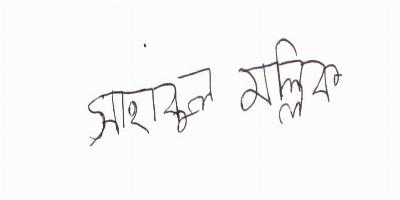 সাহাবুল মল্লিক